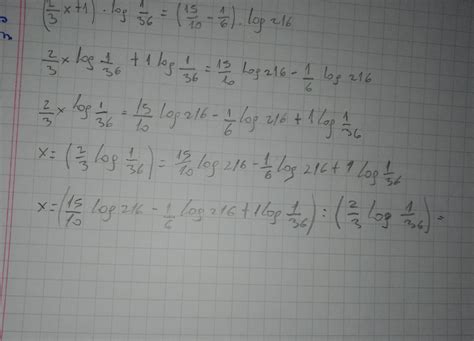 (2/3 x+1) · log 1/36 = (15/10 - 1/6) · log 216
2/3 x log 1/36 + 1 log 1/36 = 15/10 log 216 - 1/6 log 216
2/3 x log 1/36 = 15/10 log 216 - 1/6 log 216 + 1 log 1/36
x = (2/3 log 1/36) = 15/10 log 216 - 1/6 log 216 + 1 log 1/36
x = (15/10 log 216 - 1/6 log 216 + 1 log 1/36) : (2/3 log 1/36) =